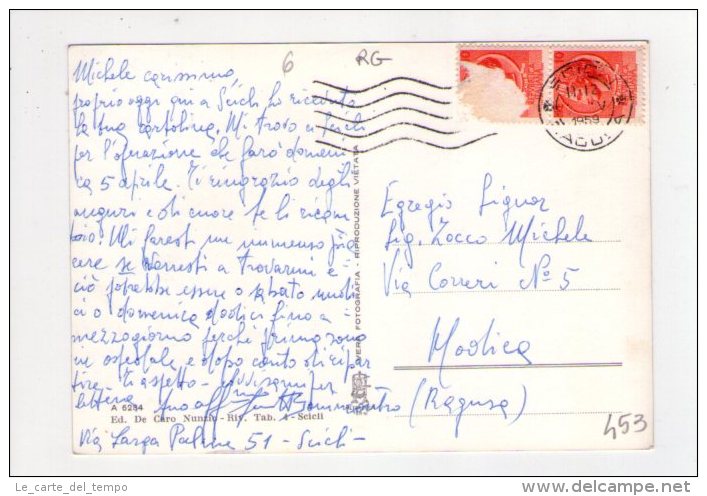 6
RG
Michele carissimo,
proprio oggi qui a Scicli ho ricevuto
la tua cartolina. Mi trovo a Scicli
per l'operazione che farò domeni
ca 5 aprile. Ti ringrazio degli
auguri e di cuore te li ricam
bio. Mi faresti un immenso pia
cere se venissi a trovarmi e
ciò potrebbe essere o sabato
o domenica dodici fino a
mezzogiorno perché prima sono
in ospedale e dopo conto di ripar
tire. Ti aspetto - scrivimi per
lettera. tuo aff.
Via Larga Palme 51 - Scicli -
A 6284
Ed. De Caro Nunzio - Riv. Tab. 4 - Scicli
VERA FOTOGRAFIA - RIPRODUZIONE VIETATA
1959
Egregio Signor
Sig. Zocco Michele
Via Correri N° 5
Modica
(Ragusa)
453
Le_carte_del_tempo
delcampe.net